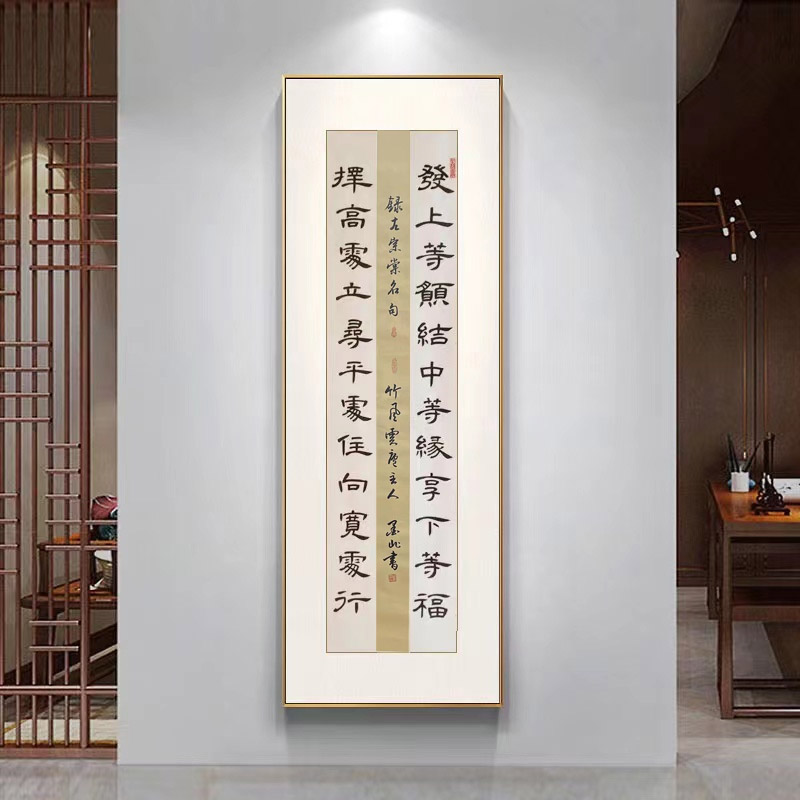 發上等願結中等緣享下等福
録左宗棠名句
竹風雲廬主人
書
擇高處立尋平處住向寬處行